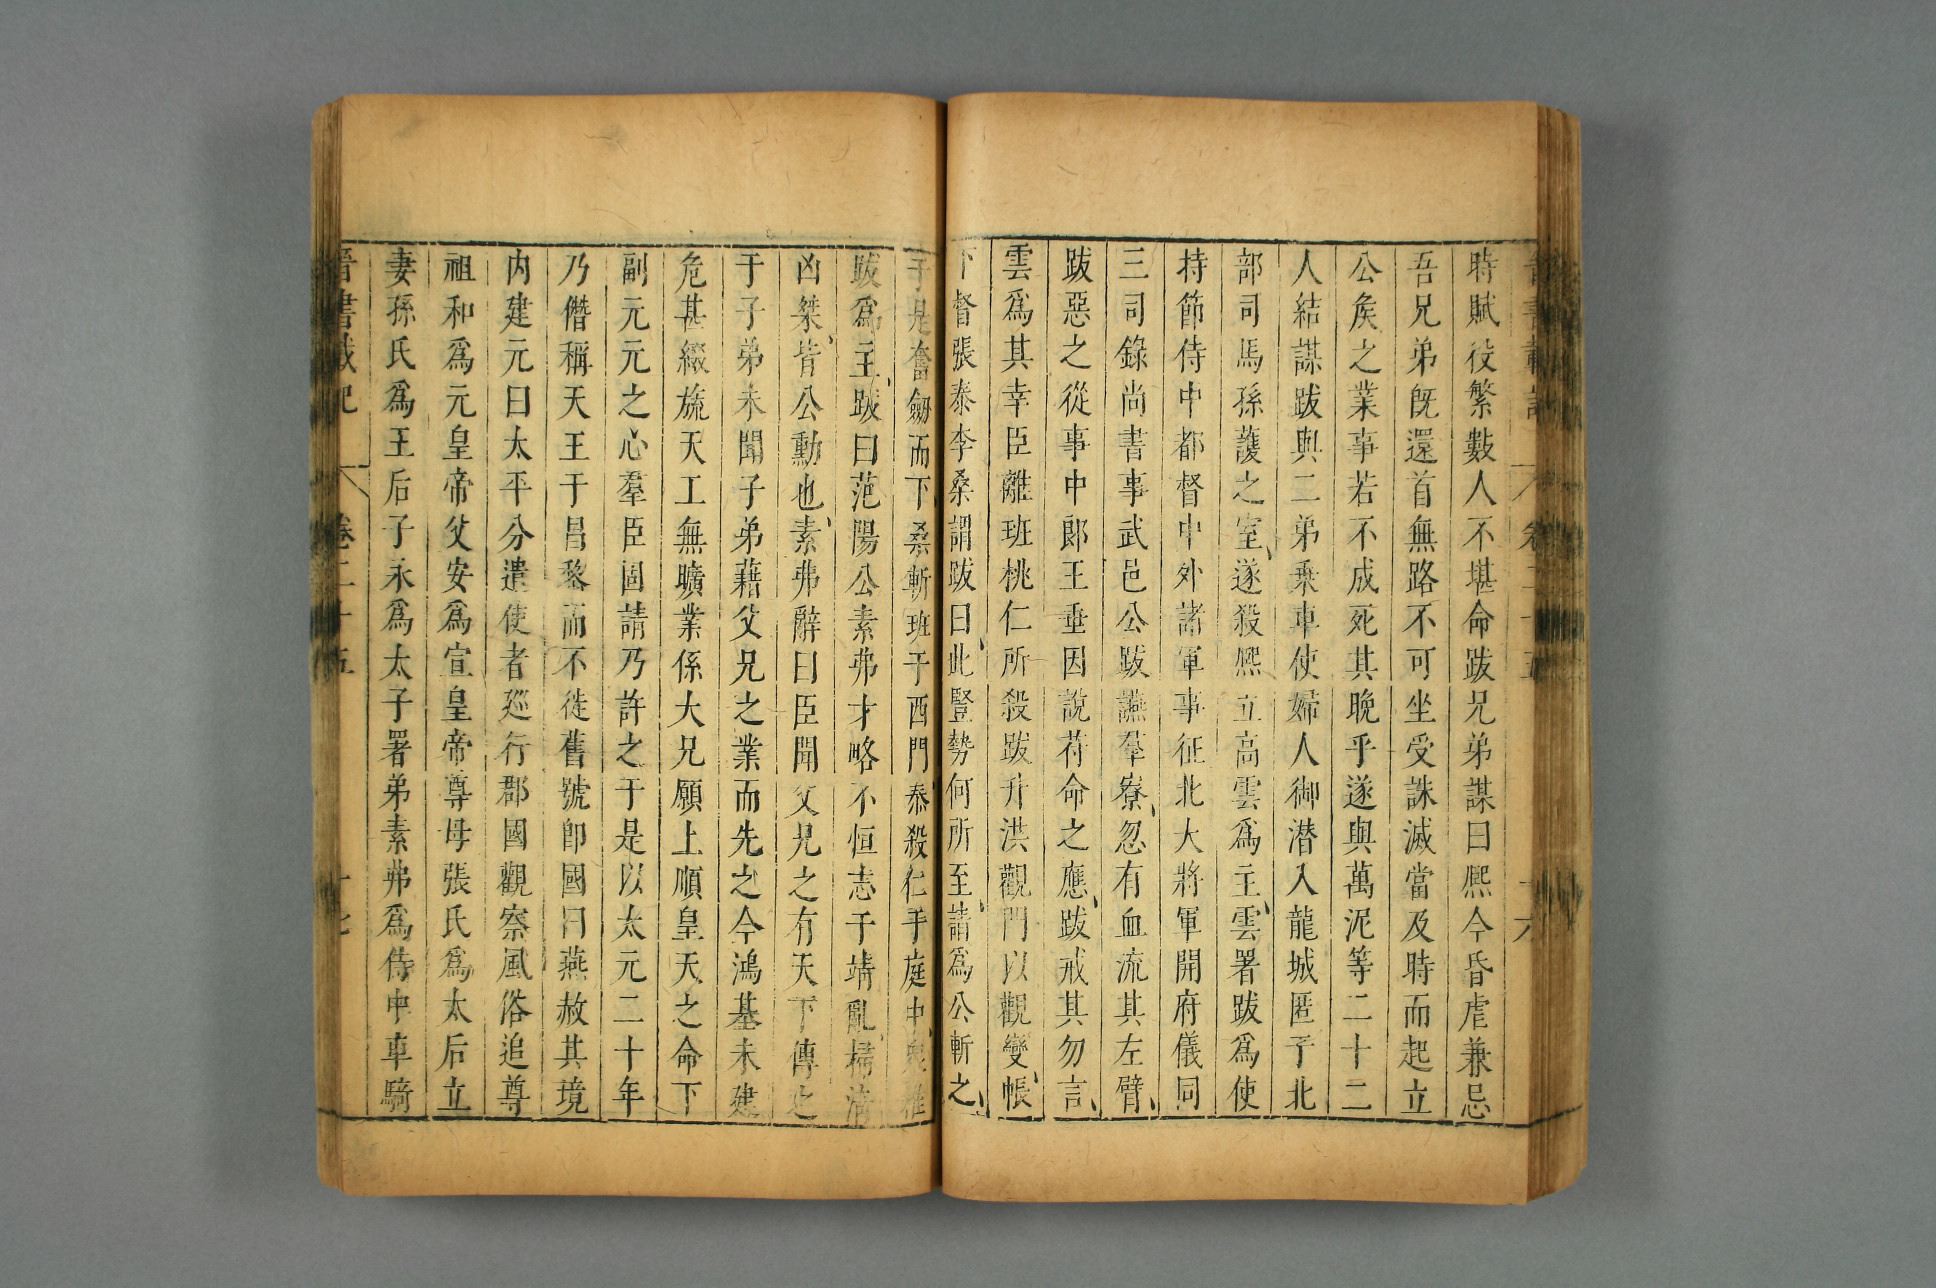 晉書載記 卷二十五 十六
時賦役繁數人不堪命跋兄弟謀曰熙今昏虐兼忌
吾兄弟旣還首無路不可坐受誅滅當及時而起立
公矦之業事若不成死其晚乎遂與萬泥等二十二
人結謀跋與二弟乗車使婦人御潜入龍城匿于北
部司馬孫護之室遂殺熙立高雲爲主雲署跋爲使
持節侍中都督中外諸軍事征北大將軍開府儀同
三司錄尚書事武邑公跋讌羣寮忽有血流其左臂
跋惡之從事中郎王垂因說符命之應跋戒其勿言
雲爲其幸臣離班桃仁所殺跋升洪觀門以觀變帳
下督張泰李桑謂跋曰此豎勢何所至請爲公斬之
于是奮劔而下桑斬班于西門泰殺仁于庭中衆推
跋爲主跋曰范陽公素弗才略不恒志于靖亂掃淸
凶桀皆公勳也素弗辭曰臣聞父兄之有天下傳之
于子弟未聞子弟藉父兄之業而先之今鴻基未建
危甚綴旒天工無曠業係大兄願上順皇天之命下
副元元之心羣臣固請乃許之于是以太元二十年
乃僭稱天王于昌黎而不徙舊號卽國曰燕赦其境
内建元曰太平分遣使者廵行郡國觀察風俗追尊
祖和爲元皇帝父安爲宣皇帝尊母張氏爲太后立
妻孫氏爲王后子永爲太子署弟素弗爲侍中車騎
晉書載記 卷二十五 十七